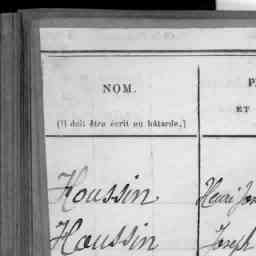 NOM.
P
(Il doit être écrit en bâtarde.)
ET
Houssin Henri
Houssin Joseph